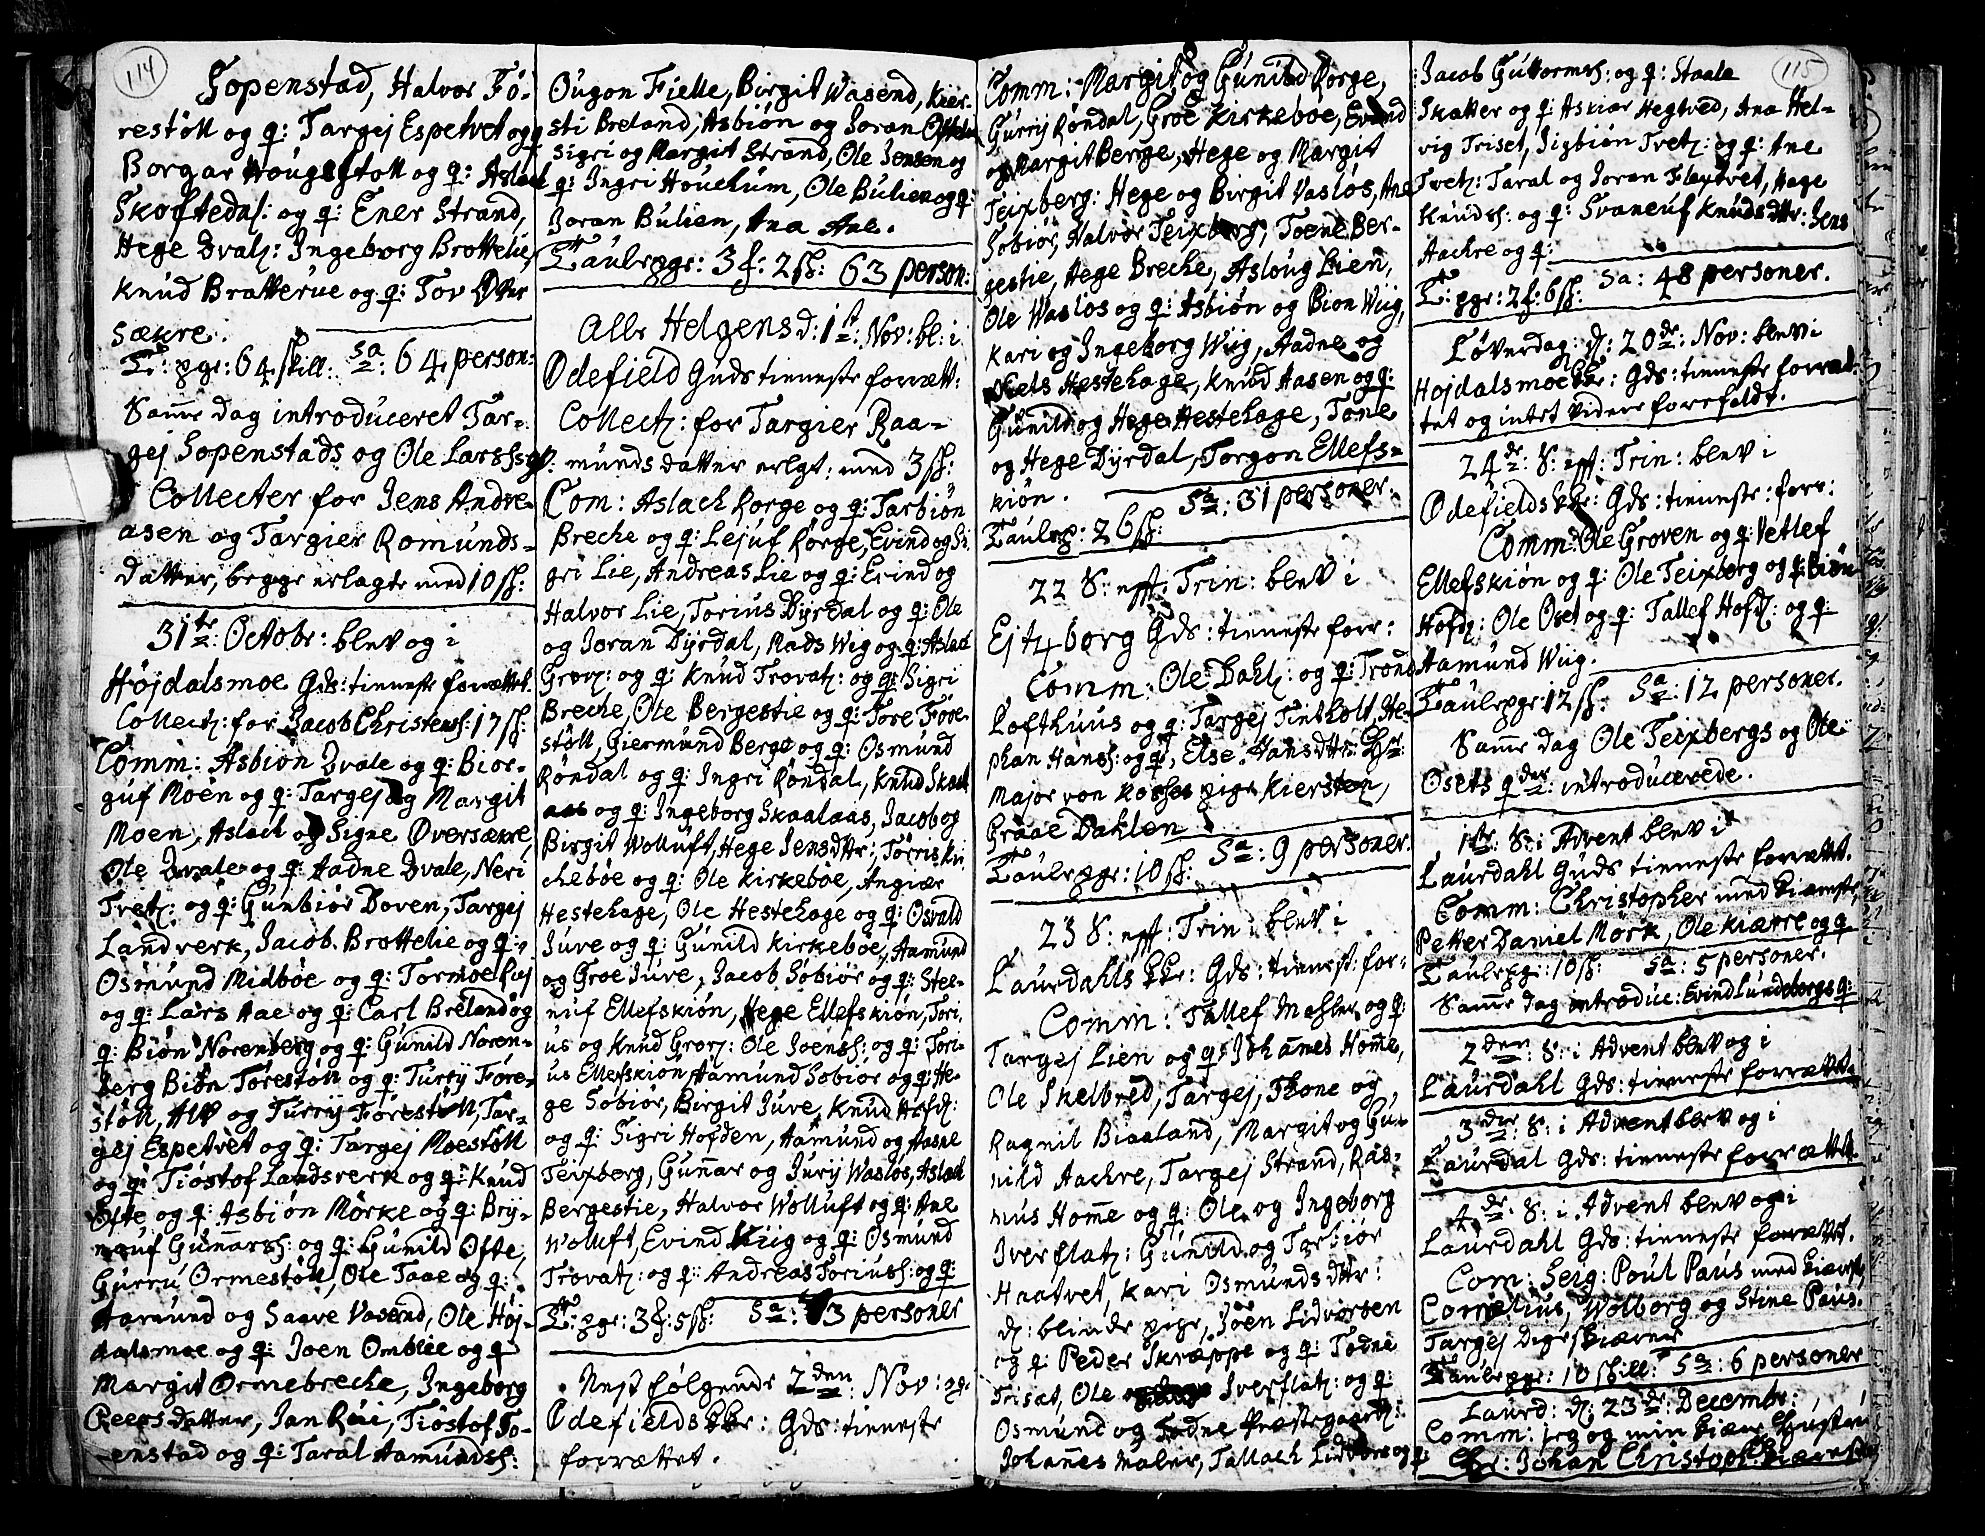 114
Sopenstad, Halvor Fö-
restöll og q: Targej Espetvet og q
Borgar Hougestoll og q: Aslach
Skoftedal: og q: Ener Strand,
Hege Dval: Ingeborg Brottelie,
Knud Bratterue og q: Tov Över
sækre.
T: pgr: 64 skill: Sa: 64 person:
Same dag introduceret Tar-
gej Sopenstads og Ole Larss q
Collecter for Jens Andre-
asen og Targier Romunds-
datter, begge erlagte med 10 ß:
31te: Octobr: blev og i
Höjdalsmoe Gds: tieneste forrættet.
Collect: for Jacob Christens: 17 ß:
Comm: Asbiön Dvale og q: Bior-
guf Moen og q: Targej og Margit
Moen, Aslach og Signe Oversækre,
Ole Dvale og q: Aadne Dvale, Neri
Tvet: og q: Gunbiör Doven, Targej
Landverk, Jacob Brottelie og q:
Osmund Midböe og q: Tormoe
og q: Lars Aae og q: Carl Breland og
q: Biön Norenberg og q: Gunild Noren-
berg Biön Förestöll og q: Turrij Före-
stöll, Alv og Turrij Förestöll, Tar-
gej Espetvet og q: Targej Moestöll
og q: Tiöstof Landsverk og q: Knud
Ofte og q: Asbiön Mörke og q: Bry-
neuf Gunnars: og q: Gunild Ofte,
Gurru Ormestöll, Ole Taae og q:
Aamund og Saave Vasend, Ole Höj-
dalsmoe og q: Joen Omblie og q
Margit Ormebreche, Ingeborg
Greegs datter, Jan Röi, Tiöstof So-
penstad og q: Taral Aamunds:
Ougon Fielle, Birgit Wasend, Kier-
sti Breland, Asbiön og Joran Ofte
Sigri og Margit Strand, Ole Jensen og
q: Ingri Houchum, Ole Bulien og q:
Joran Bulien, Ana Aae.
Taulepgr: 3 f: 2 ß: 63 person:
Alle Helgensd: 1st: Nov: bl: i
Ødefield Guds tieneste forrett:
Collect: for Targier Raa-
munds datter erlgt: med 3 ß:
Com: Aslach Rorge og q: Tarbiön
Breche og q: Lejuf Rörge, Evind og Si
gri Lie, Andreas Lie og q: Evind og
Halvor Lie, Torius Dyrdal og q: Ole
og Joran Dyrdal, Rads Wig og q: Aslach
Grov: og q: Knud Trovat: og q: Sigri
Breche, Ole Bergestie og q: Tore Före-
stöll, Giermund Berge og q: Osmund
Röndal og q: Ingri Röndal, Knud Skaal
aas og q: Ingeborg Skaalaas, Jacob og
Birgit Wolluft, Hege Jensdttr: Törris Ki
cheböe og q: Ole Kirkeboe, Angiær
Hestehage, Ole Hestehage og q: Osvald
Juve og q: Gunild Kirkeboe, Aamund
og Groe Juve, Jacob Sobiör og q: Stee-
nuf Ellefskiön, Hege Ellefskiön, Tori
us og Knud Grov: Ole Joens: og q: Tori-
us Ellefskiön, Aamund Sobiör og q: He-
ge Sobiör, Birgit Juve, Knud Hofd:
og q: Sigri Hofden, Aamund og Aasne
Teixberg, Gunnar og Jurij Waslos, Aslach
Bergestie, Halvor Wolluft og q: Ane
Woluft, Evind Wiig og q: Osmund
Trovat: og q: Andreas Torius: og q:
T: pgr: 3 f: 5 ß: Sa: 73 personer
Nest følgende 2den: Nov: og i
Ødefields kkr: Gds: tieneste
forrættet.
Comm: Margit og Gunild Rorge,
Gurrij Röndal, Groe Kirkeboe, Evind
og Margit Berge, Hege og Margit
Teixberg: Hege og Birgit Vaslos, Ane
Sobiör, Halvor Teixberg, Toene Ber-
gestie, Hege Breche, Asloug Lien,
Ole Waslos og q: Asbiön og Bion Wiig,
Kari og Ingeborg Wiig, Aadne og
Niels Hestehage, Knud Aasen og q:
Gunild og Hege Hestehage, Tone
og Hege Dyrdal, Torgon Ellefs-
kiön. Sa: 31 personer.
Taulepg: 26 ß:
22 S: eft: Trin: blev i
Ejtzborg Gds: tieneste forr:
Comm: Ole Dahl: og q: Trond
Lofthuus og q: Targej Tintholt, He-
phan Hans: og q: Else Hansdttr: Hr:
Major von Kosses pige Kiersten,
Graae Dahlen
Taulepgr: 10 ß: Sa: 9 personer.
23 S: eft: Trin: blev i
Laurdahls kkr: Gds: tienest: for:
Comm: Tallef Mahler og q:
Targej Lien og q: Johannes Home,
Ole Skelbred, Targej, Thone og
Ragnil Biaaland, Margit og Gu-
nild Aachre, Targej Strand, Ras-
mus Home og q: Ole og Ingeborg
Iverflat: Gunild og Torbiör
Haatvet, Kari Osmunds dttr:
d: blinde pige, Jöen Lidvorsen
og q: Peder Skreppe og q: Todne
Trisæt, Ole Iverflat: og q:
Osmund og Todne Præstegaard:
Johanes Maler, Tallach Lidvors og q:
115
Jacob Guttorms: og q: Staale
Skatter og q: Askiær Hegtved, Ana Hel-
vig Triset, Sigbiön Tvet: og q: Ane
Tvet: Taral og Joran Fløjtvet, Hege
Knuds: og q: Svaneuf Knudsdttr: Jens
Aachre og q:
T: pgr: 2 f: 6 ß: Sa: 48 personer.
Løverdag: d: 20de: Nov: blev i
Hojdalsmoe kkr: Gds: tieneste forræt-
tet og intet videre forefaldt.
24de: S: eft: Trin: blev i
Ødefields kkr: Gds: tieneste: forr:
Comm: Ole Groven og q: Vetlef
Ellefskiön og q: Ole Teixberg og q: Biön
Hofd: Ole Oset og q: Tallef Hofd: og q:
Aamund Wiig.
Taulepgr: 12 ß: Sa: 12 personer.
Same dag Ole Teixbergs og Ole
Osets qder: introducerede.
1te: S: i Advent blev i
Laurdahl Guds tieneste forrættet.
Comm: Christopher med kiæreste
Petter Daniel Mörk, Ole Kiætre og q
Taulepgr: 10 ß: Sa: 5 personer.
Same dag introduc: Evind Lundeborgs q:
2den: S: i Advent blev og i
Laurdahl Gds: tieneste forrættet.
3der: S: i Advent blev og i
Laurdal Gds: tieneste forrættet.
4de: S: i Advent blev og i
Laurdahl Gds: tieneste forrættet.
Com: Serg: Poul Paus med kiæreste,
Cornelius, Wolborg og Stine Paus.
Targej Digerskiærer
Taulepgr: 10 skill: Sa: 6 personer
Laurd: d: 23de: Decembr:
Comm: jeg og min kiære Hustru
Hr: Johan Christoph: kiæreste